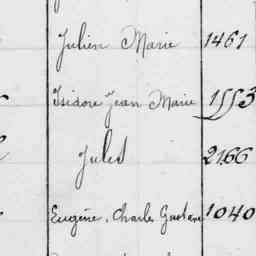 Julien Marie 1461
Isidore Jean Marie 1553
Jules 2166
Eugène, Charles Gustave 1040